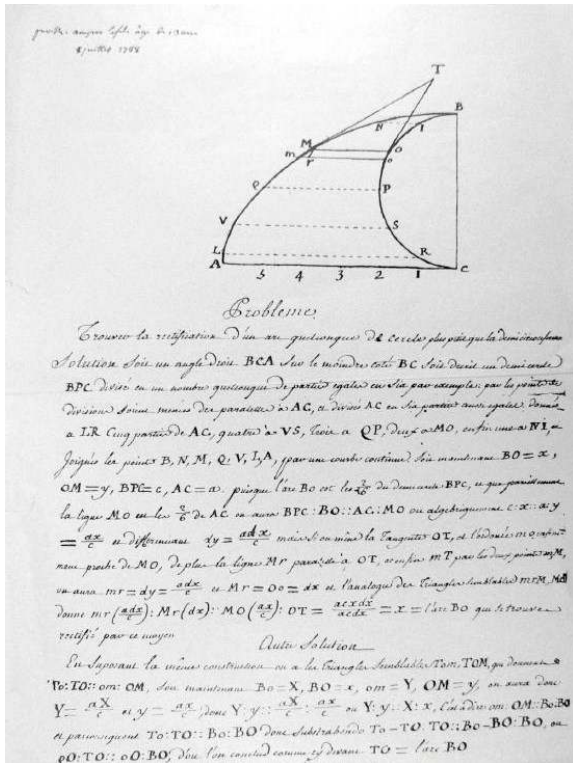 juillet 1788
T
B
M
N
I
m
r
O
o
P
P
V
S
L
R
A
5 4 3 2 1
C
Probleme
Trouver la rectification d'un arc quelconque de cercle plus petit que la demi circonference
Solution Soit un angle droit BCA Sur le moindre coté BC Soit decrit un demi cercle
BPC divisé en un nombre quelconque de parties egales en Six par exemple; par les points de
division Soient menées des paralelle à AC, et divisés AC en Six parties aussi egales donnés
a LR Cinq parties de AC, quatre à VS, trois a QP, deux a MO, enfin une a NI, et
Joignés les points B, N, M, Q, V, L, A, par une courbe continue Soit maintenant BO = x,
OM = y, BPC = c, AC = a. puisque l'arc BO est les 2/6 du demi cercle BPC, et que pareillement
la ligne MO est les 2/6 de AC on aura BPC : BO :: AC : MO ou algebriquement c : x :: a : y
= ax/c et differenciant dy = adx/c mais Si on mene la Tangente OT, et l'ordonée mo
ment proche de MO, de plus la ligne Mr paralele à OT, et enfin mT par les deux points m, M,
on aura mr = dy = adx/c et Mr = Oo = dx et l'analogie des Triangles Semblables mrM, MOT
donne mr (adx/c) : Mr (dx) :: MO (ax/c) : OT = acxdx/acdx = x = l'arc BO qui se trouve
rectifié par ce moyen
Autre Solution
En Suposant la même construction on a les Triangles Semblables Tom, TOM, qui donnent
To : TO :: om : OM, Soit maintenant Bo = X, BO = x, om = Y, OM = y, on aura donc
Y = aX/c et y = ax/c, donc Y : y :: aX/c : ax/c ou Y : y :: X : x, C'est à dire om : OM :: Bo : BO
et par consequent To : TO :: Bo : BO donc Substrahendo To - TO : TO :: Bo - BO : BO, ou
oO : TO :: oO : BO, d'ou l'on conclud comme cy devant TO = l'arc BO